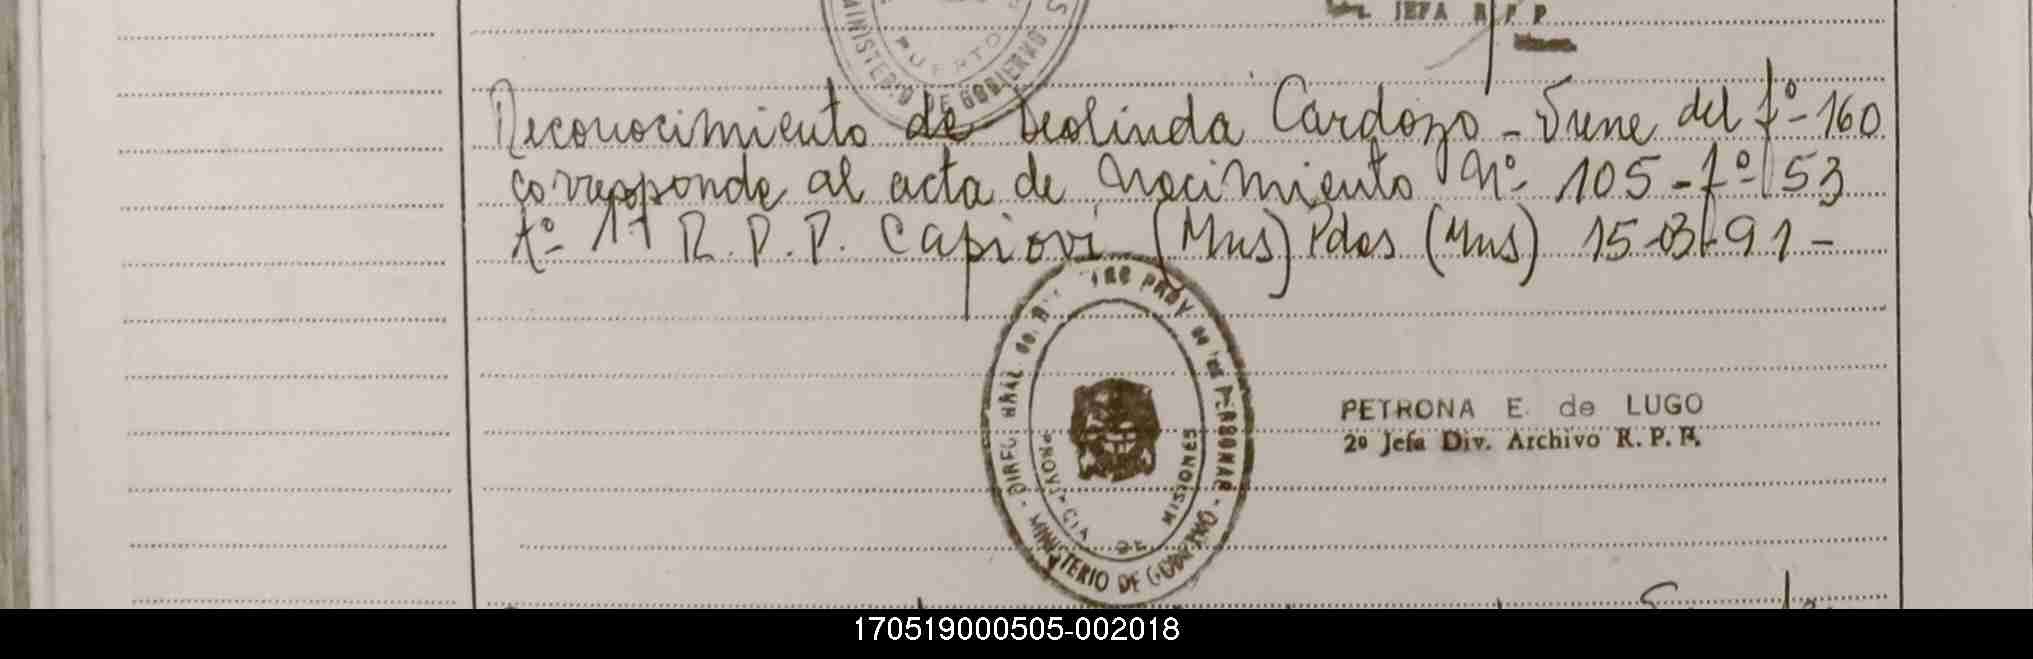 JEFA R P P
MINISTERIO DE GOBIERNO
PUERTO
Reconocimiento de Deolinda Cardozo - Viene del fº- 160
corresponde al acta de Nacimiento Nº- 105 - fº- 53
tº- 17 R.P.P. Capiovi (Mns) Pdas (Mns) 15-03-91 -
PROV. DE LAS PERSONAS - MINISTERIO DE GOBIERNO -
PROVINCIA DE MISIONES
PETRONA E. de LUGO
2º Jefa Div. Archivo R. P. P.
170519000505-002018